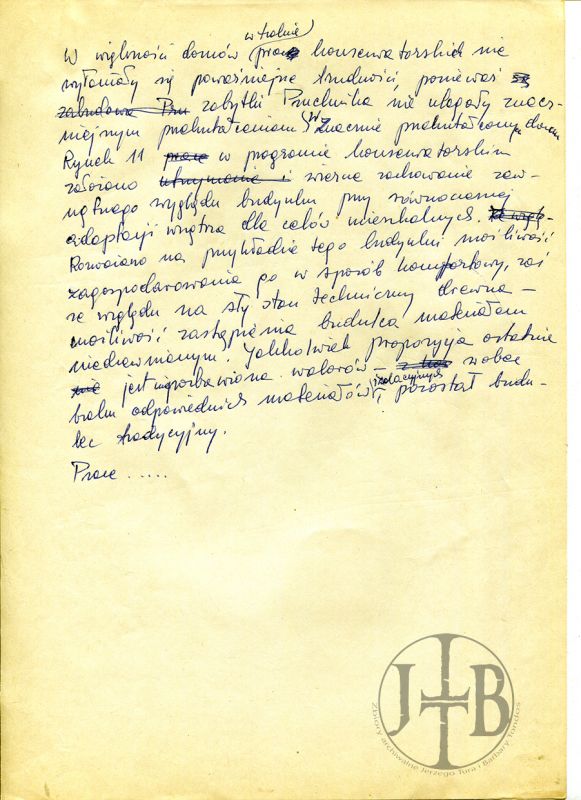 w trakcie
W większości domów prac konserwatorskich nie
wyłaniały się poważniejsze trudności, ponieważ są
zabudowa Pru zabytki Pruchnika nie uległy znacz-
niejszym przekształceniom. W znacznie przekształconym domu
Rynek 11 prace w programie konserwatorskim
założono utrzymanie i wierne zachowanie zew-
nętrznego wyglądu budynku przy równoczesnej
adaptacji wnętrza dla celów mieszkalnych.
Rozważano na przykładzie tego budynku możliwość
zagospodarowania go w sposób komfortowy, zaś
ze względu na zły stan techniczny drewna –
możliwość zastąpienia budulca materiałem
niedrewnianym. Jakkolwiek propozycja ostatnia
nie jest niepozbawiona walorów – wobec
izolacyjnych
braku odpowiednich materiałów, pozostał budu-
lec tradycyjny.
Prace .....
JTB
Zbiory archiwalne Jerzego Tura i Barbary Tondos